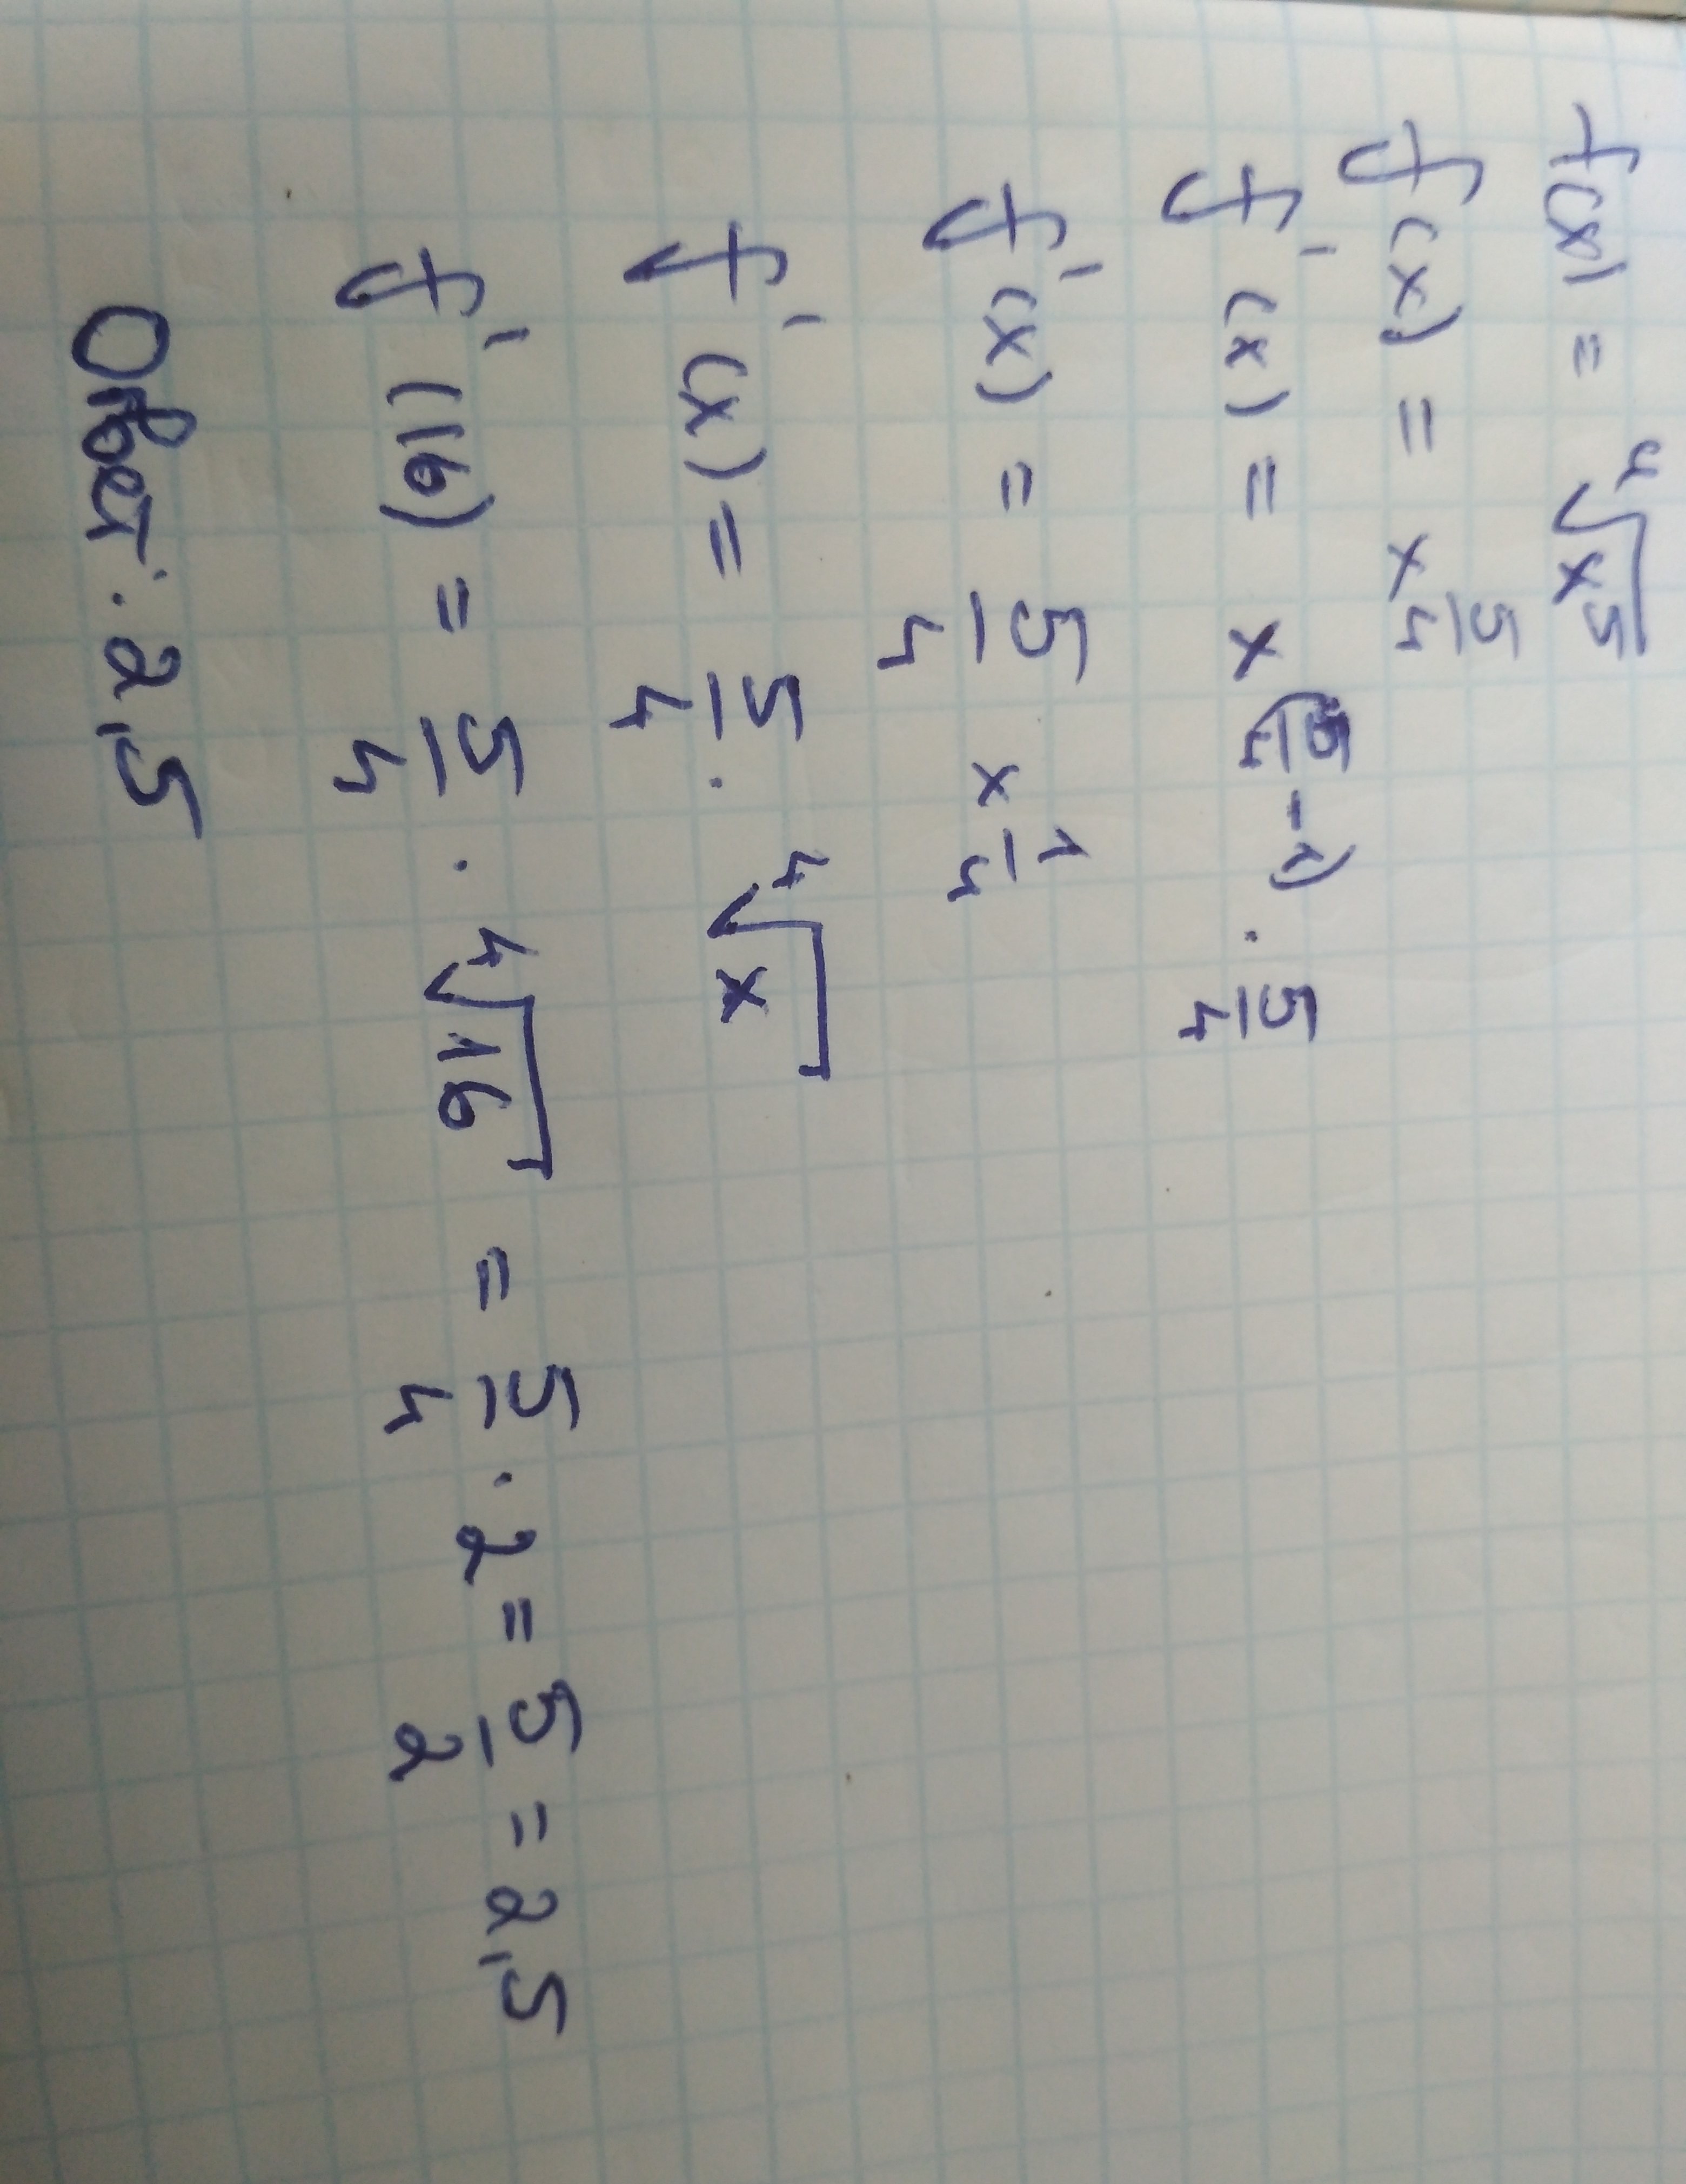 f(x) = ⁴√x⁵
f(x) = x^(5/4)
f'(x) = x^(5/4 - 1) · 5/4
f'(x) = 5/4 x^(1/4)
f'(x) = 5/4 · ⁴√x
f'(16) = 5/4 · ⁴√16 = 5/4 · 2 = 5/2 = 2,5
Ответ: 2,5